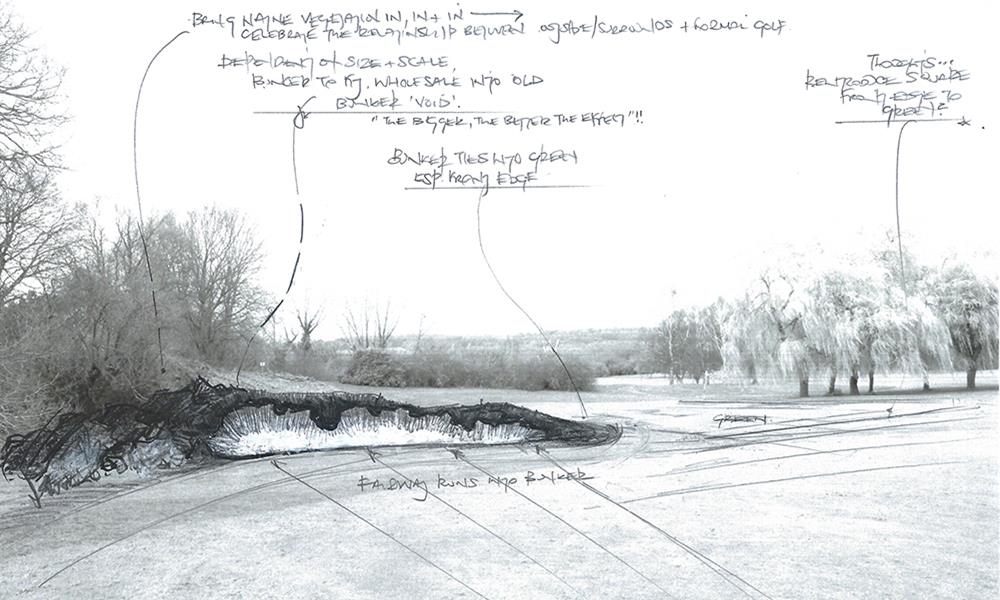 BRING NATIVE VEGETATION IN, IN + IN
CELEBRATE THE RELATIONSHIP BETWEEN OUTSIDE/SURROUNDS + FORMAL GOLF
DEPENDENT OF SIZE + SCALE,
BUNKER TO FIT WHOLESALE INTO OLD
BUNKER 'VOID'.
"THE BIGGER, THE BETTER THE EFFECT"!!
BUNKER TIES INTO GREEN
ESP. FRONT EDGE
THOUGHTS...
REINTRODUCE SQUARE
FRONT EDGE TO
GREEN?
GREEN
FAIRWAY RUNS INTO BUNKER